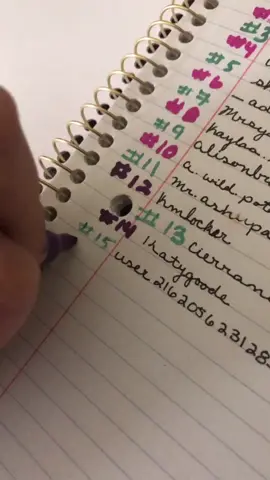 #3
#4
#5 sh
#6 - ad
#7 mray
#8 kaylaa..
#9 allisonb
#10 a. wild pot
#11 mr. ashupa
#12 hmlocker
#13 cierran
#14 1katygoode
#15 user21620562312